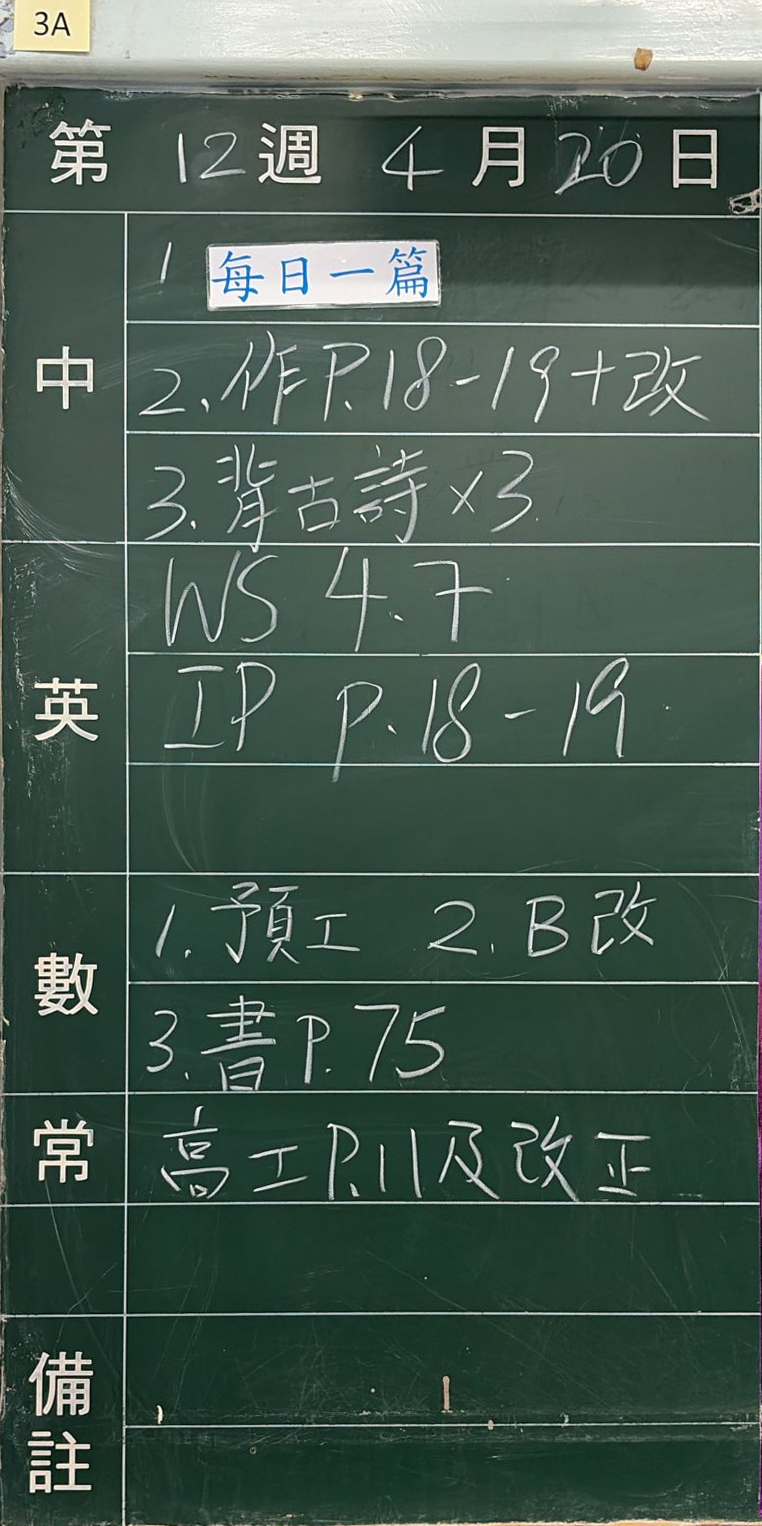 3A
第 12 週 4 月 20 日
中
1 每日一篇
2. 作P.18-19+改
3. 背古詩×3
英
WS 4.7
IP P.18-19
數
1. 預工 2. B改
3. 書P.75
常
高工P.11及改正
備註